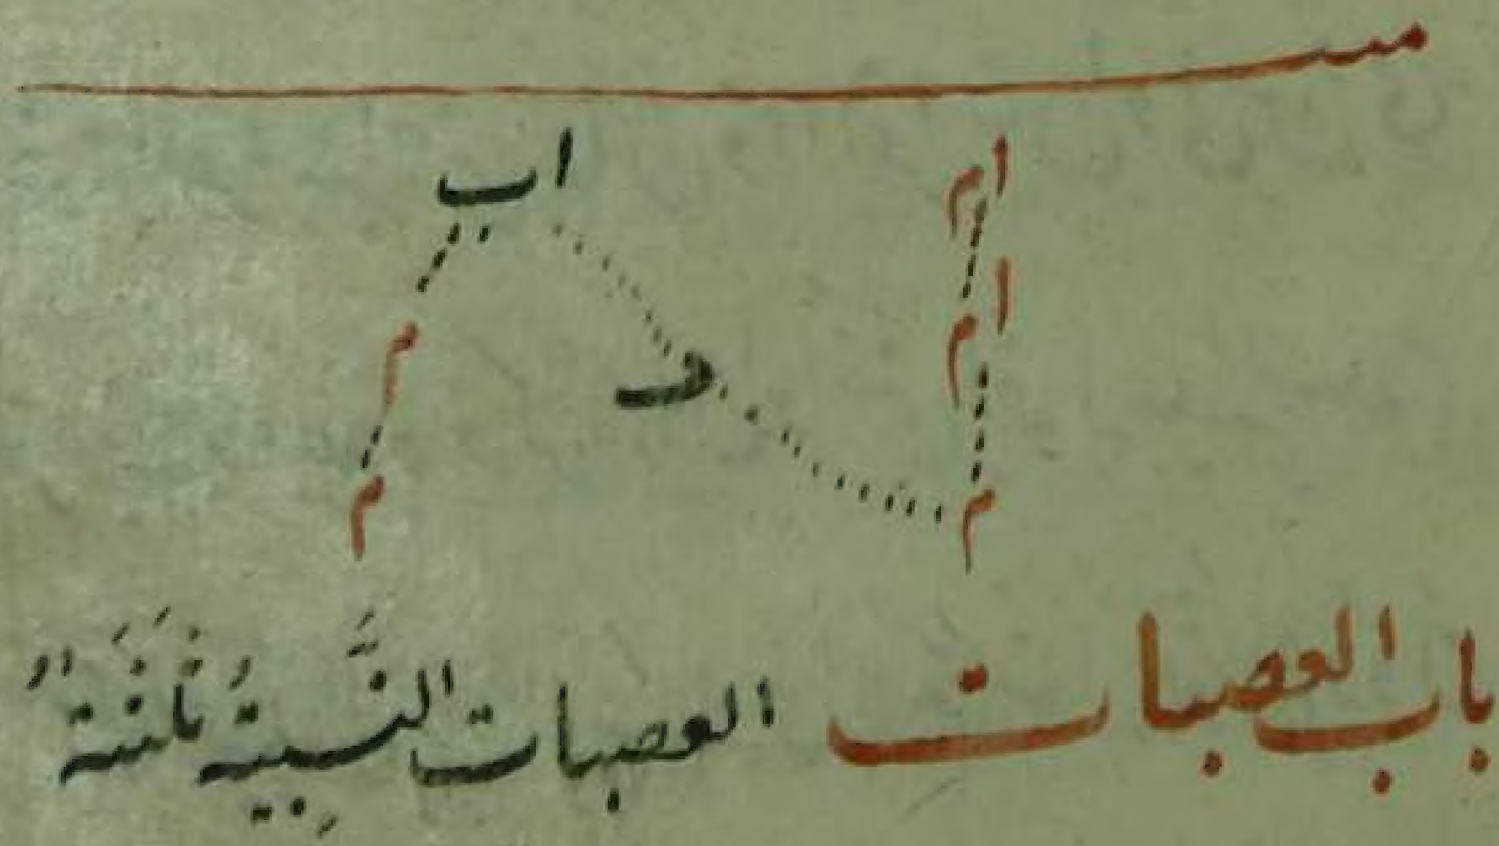 مسـ
ام
اب
ام
م
م
م
باب العصبات العصبات النَّسبِيةُ ثلثَةَ